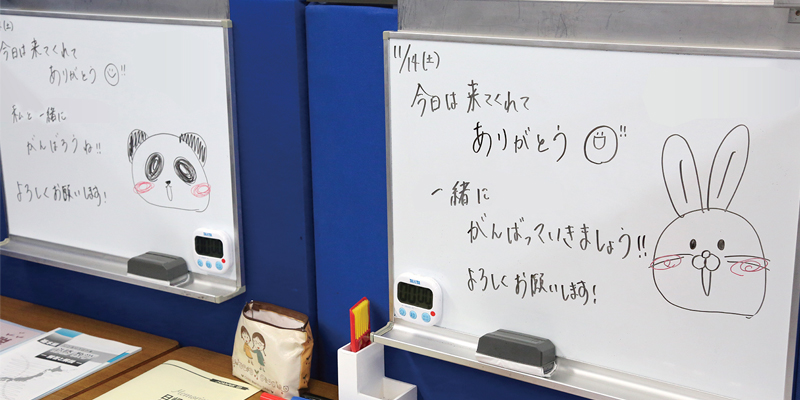 (土)
今日は来てくれて
ありがとう!!
私と一緒に
がんばろうね!!
よろしくお願いします!
11/14(土)
今日は来てくれて
ありがとう!!
一緒に
がんばっていきましょう!!
よろしくお願いします!